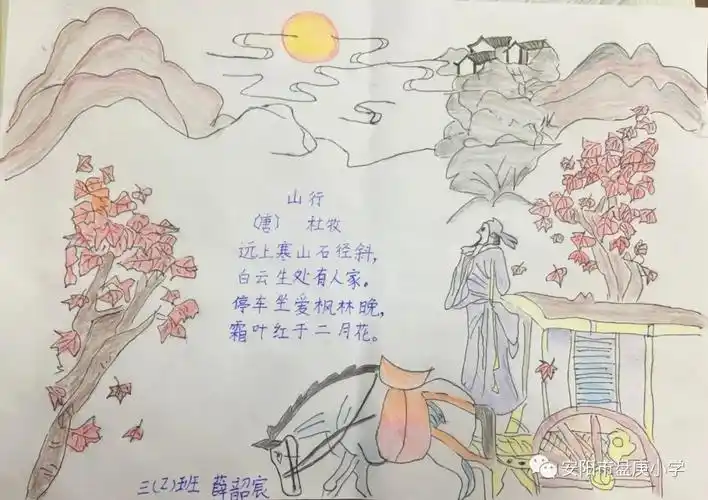 山行
(唐) 杜牧
远上寒山石径斜，
白云生处有人家。
停车坐爱枫林晚，
霜叶红于二月花。
三(2)班 薛韶宸
安阳市盘庚小学